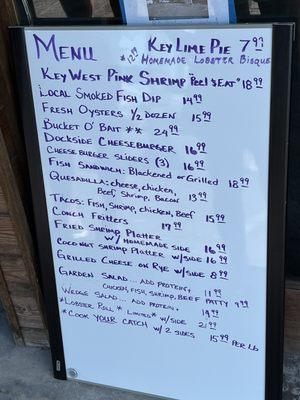 Menu
Key Lime Pie 7.99
$12.99 Homemade Lobster Bisque
Key West Pink Shrimp "Peel & Eat" 18.99
Local Smoked Fish Dip 14.99
Fresh Oysters 1/2 Dozen 15.99
Bucket O' Bait ** 24.99
Dockside Cheeseburger 16.99
Cheeseburger Sliders (3) 16.99
Fish Sandwich: Blackened or Grilled 18.99
Quesadilla: cheese, chicken,
Beef, Shrimp, Bacon 13.99
Tacos: Fish, Shrimp, chicken, Beef 15.99
Conch Fritters 17.99
Fried Shrimp Platter
w/ Homemade side 16.99
Coconut Shrimp Platter w/side 16.99
Grilled Cheese on Rye w/side 8.99
Garden Salad... add protein,
chicken, fish, shrimp, Beef Patty 9.99
Wedge Salad... Add protein, 11.99
*Lobster Roll * Limited* w/side 21.99
*Cook Your Catch w/ 2 sides 15.99 per lb